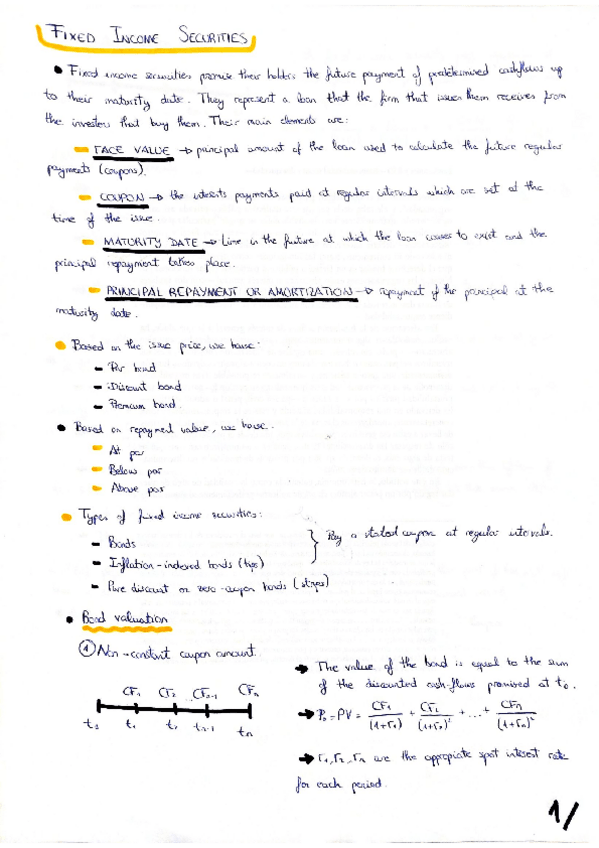 FIXED INCOME SECURITIES
• Fixed income securities promise their holders the future payment of predetermined cashflows up
to their maturity date. They represent a loan that the firm that issues them receives from
the investors that buy them. Their main elements are:
- FACE VALUE → principal amount of the loan used to calculate the future regular
payments (coupons).
- COUPON → the interests payments paid at regular intervals which are set at the
time of the issue.
- MATURITY DATE → time in the future at which the loan ceases to exist and the
principal repayment takes place.
- PRINCIPAL REPAYMENT OR AMORTIZATION → repayment of the principal at the
maturity date.
• Based on the issue price, we have:
- Par bond
- Discount bond
- Premium bond.
• Based on repayment value, we have:
- At par
- Below par
- Above par
• Types of fixed income securities:
- Bonds
- Inflation-indexed bonds (tips)
} Pay a stated coupon at regular intervals.
- Pure discount or zero-coupon bonds (strips)
• Bond valuation
① Non-constant coupon amount.
CF₁ CF₂ CFₙ₋₁ CFₙ
t₀ t₁ t₂ tₙ₋₁ tₙ
→ The value of the bond is equal to the sum
of the discounted cash-flows promised at t₀.
→ P₀ = PV = CF₁/(1+r₁) + CF₂/(1+r₂)² + ... + CFₙ/(1+rₙ)²
→ r₁, r₂, rₙ are the appropiate spot interest rate
for each period.
1/